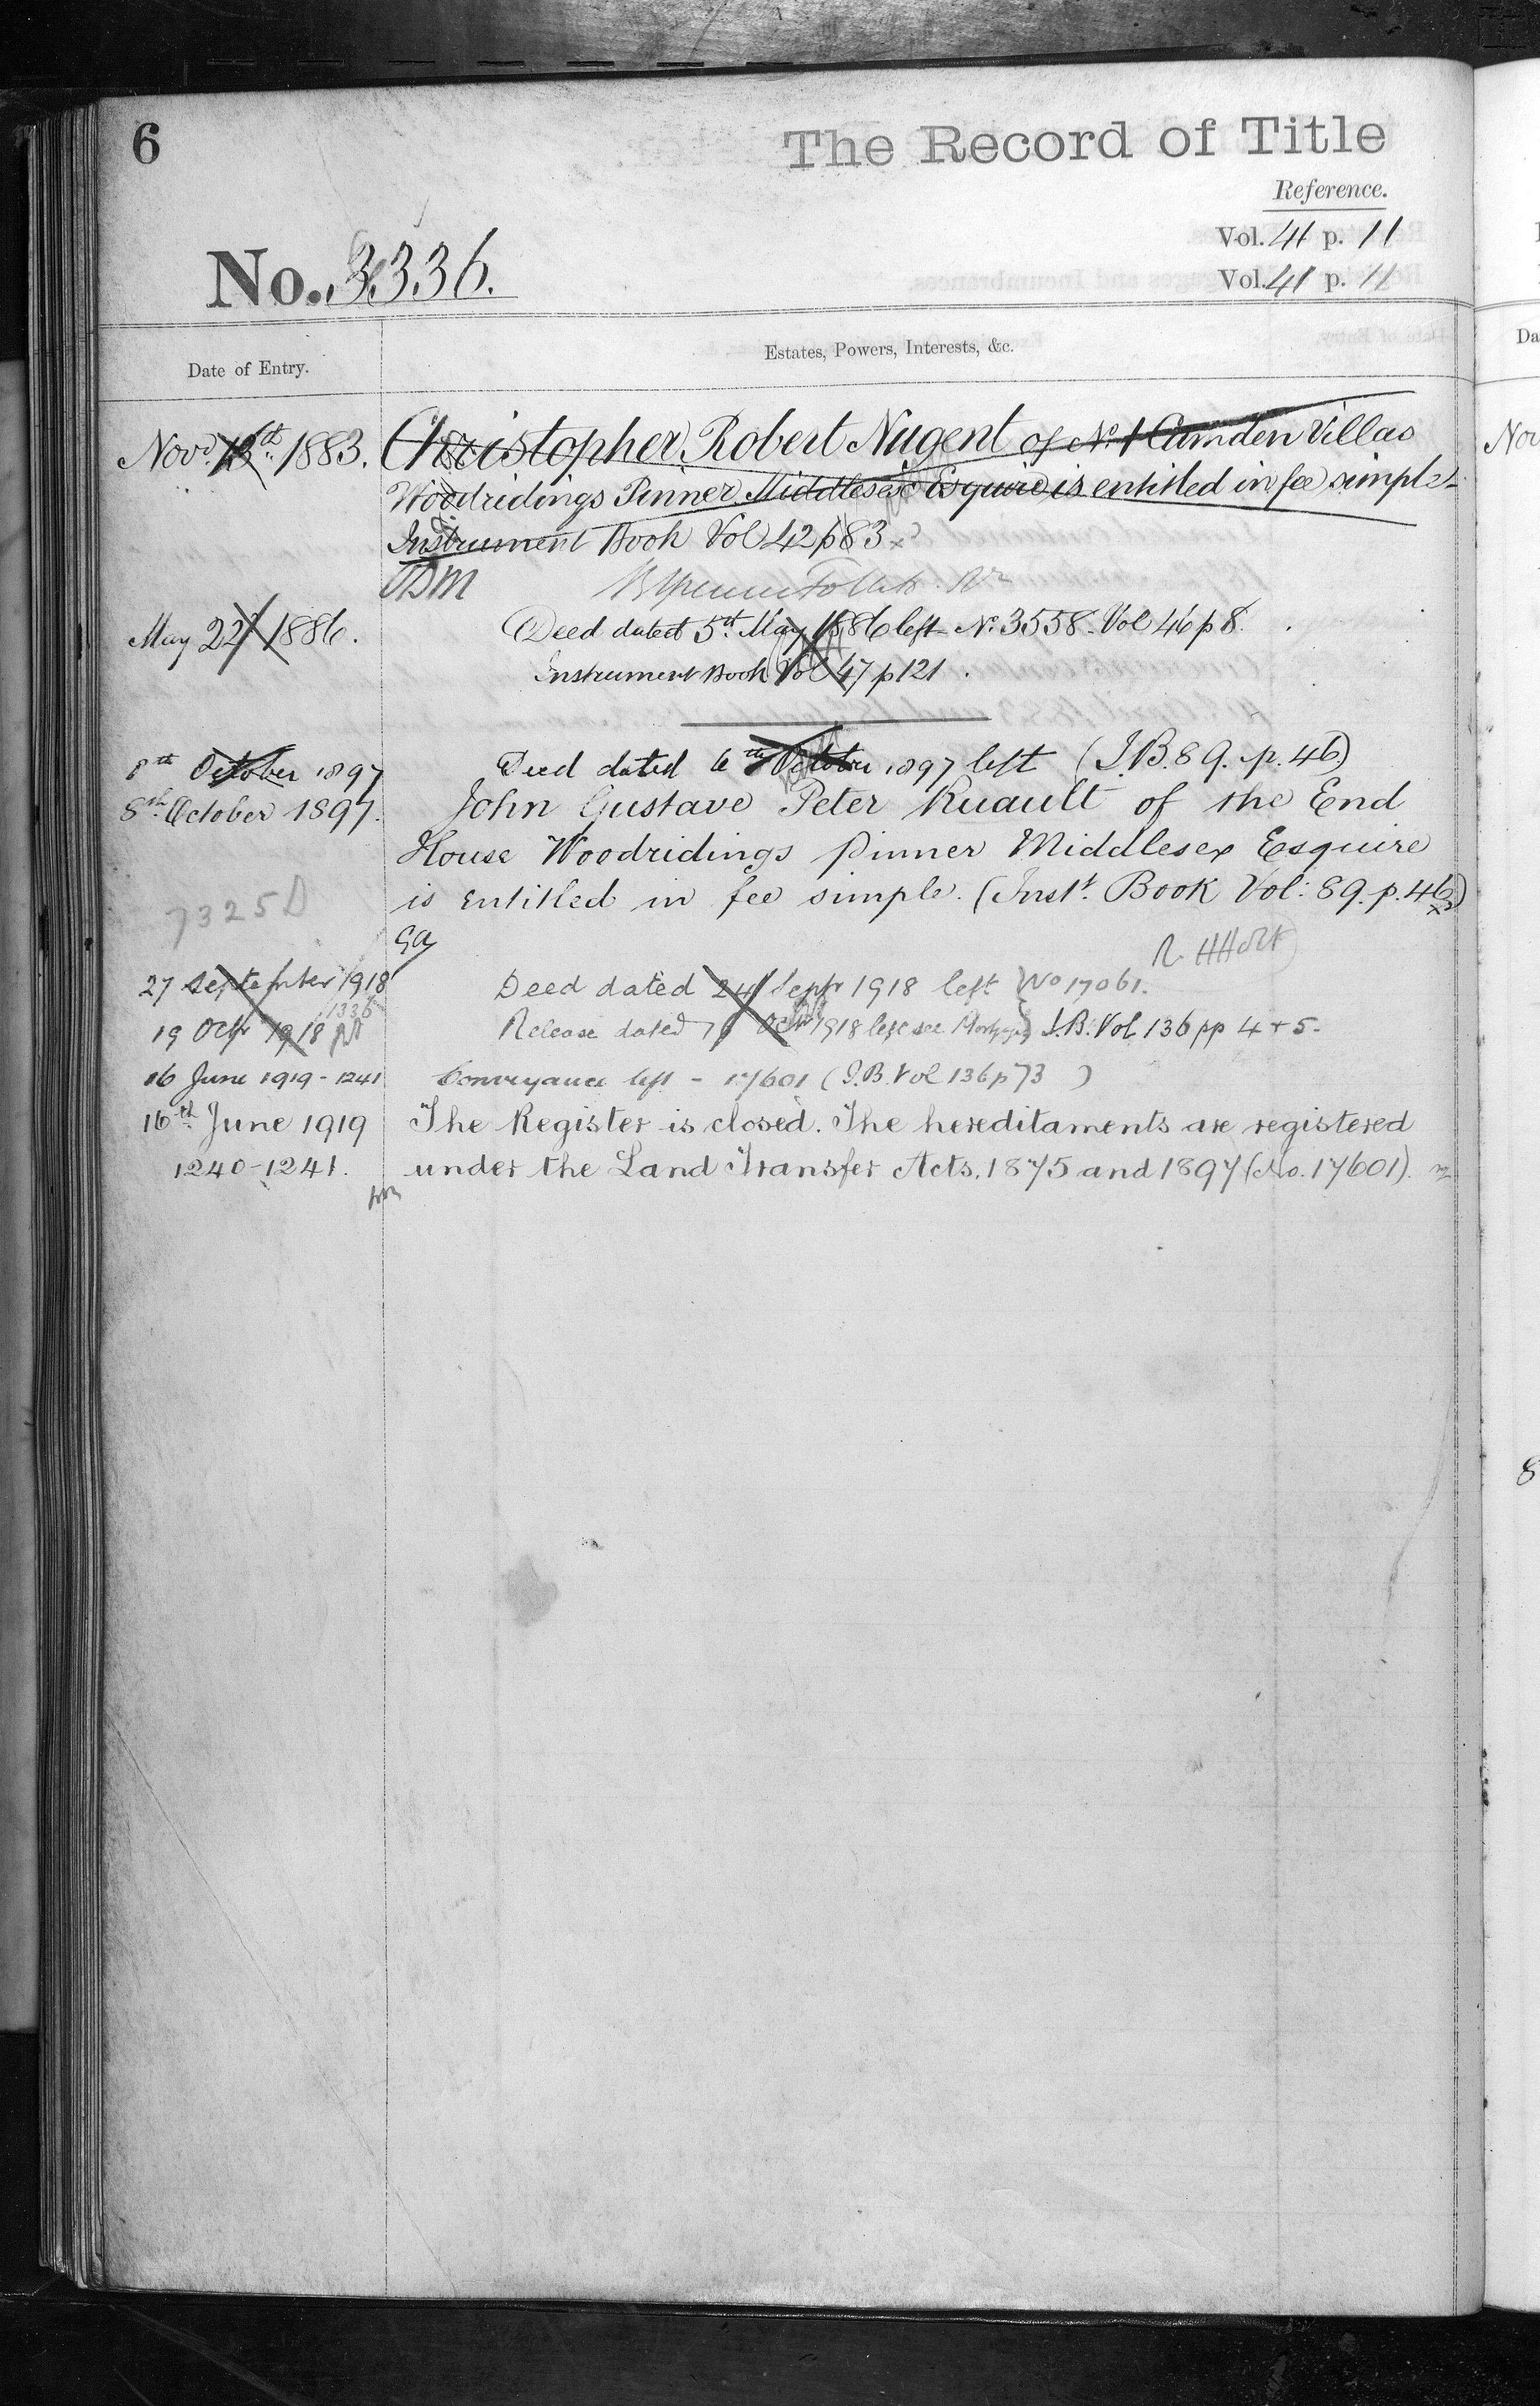 6
The Record of Title
Reference.
Vol. 41 p. 11
Vol. 41 p. 11
No. 3336.
Date of Entry.
Estates, Powers, Interests, &c.
Novr. 13th. 1883. Christopher Robert Nugent of No. 1 Camden Villas
Woodridings Pinner Middlesex Esquire is entitled in fee simple
Instrument Book Vol 42 p 83
May 22 1886. Deed dated 5th. May 1886 left No. 3558. Vol 46 p 8.
Instrument Book Vol 47 p 121.
8th October 1897 Deed dated 6th October 1897 left (I.B. 89. p. 46.)
8th. October 1897. John Gustave Peter Ruault of the End
House Woodridings Pinner Middlesex Esquire
is entitled in fee simple. (Inst. Book Vol: 89. p. 46)
7325 D
27 September 1918 Deed dated 24 Septr 1918 left } No 17061.
1336
19 Octr 1918 Release dated Octr 1918 left see Mortgages } I.B. Vol 136 pp 4 + 5-
16 June 1919 - 1241 Conveyance left - 17601 (I.B. Vol 136 p 73 )
16th. June 1919 The Register is closed. The hereditaments are registered
1240-1241. under the Land Transfer Acts, 1875 and 1897 (No. 17601).
Da
Nov
8